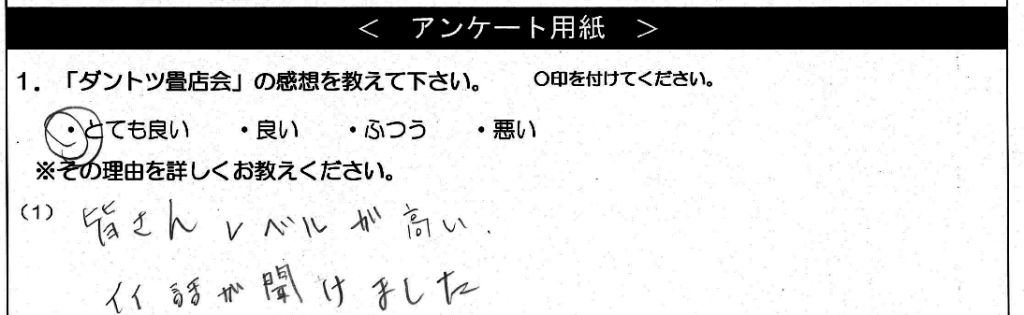 ＜ アンケート用紙 ＞
1．「ダントツ畳店会」の感想を教えて下さい。 〇印を付けてください。
・とても良い ・良い ・ふつう ・悪い
※その理由を詳しくお教えください。
(1) 皆さん レベルが高い.
イイ話が聞けました